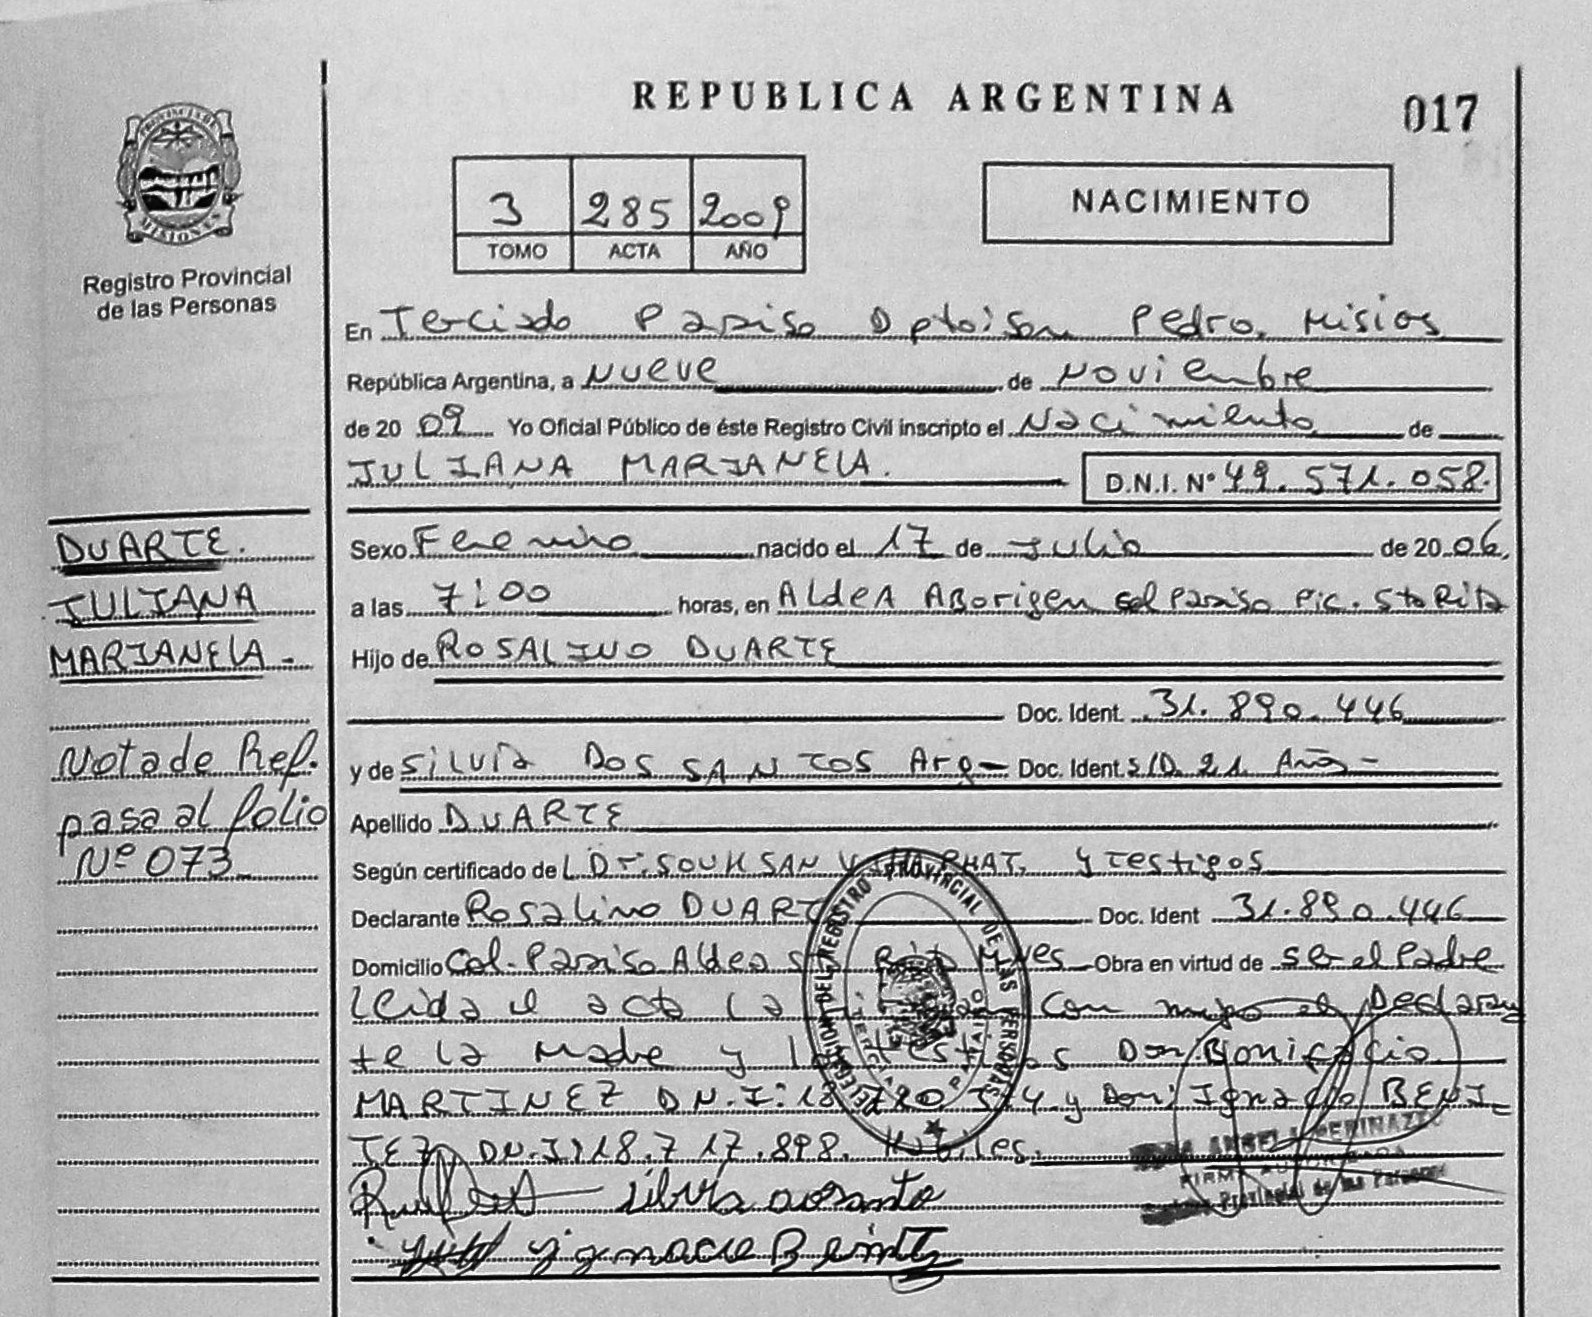 REPUBLICA ARGENTINA
017
PROVINCIA DE
MISIONES
Registro Provincial
de las Personas
3 285 2009
TOMO ACTA AÑO
NACIMIENTO
En Terciado Paraiso Dpto: San Pedro, Misios
República Argentina, a Nueve de Noviembre
de 20 09 Yo Oficial Público de éste Registro Civil inscripto el Nacimiento de
JULIANA MARIANELA.
D.N.I. Nº 49.571.058.
DUARTE.
JULIANA
MARIANELA -
Nota de Ref.
pasa al folio
Nº 073
Sexo Femenino nacido el 17 de Julio de 20 06.
a las 7:00 horas, en Aldea Aborigen Col Paraiso Pic. Sta Rita
Hijo de ROSALINO DUARTE
Doc. Ident. 31.890.446
y de SILVIA DOS SANTOS Arg - Doc. Ident. S/D. 21 Años -
Apellido DUARTE
Según certificado de L Dr. SOUKSAN y Testigos
Declarante Rosalino DUARTE Doc. Ident 31.890.446
Domicilio Col. Paraiso Aldea Mnes Obra en virtud de Ser el Padre
Leida el acta la con migo el Declaran
te la Madre y los testigos Don Bonifacio
MARTINEZ D.N.I: 18 y Don: Ignacio BENI-
TEZ D.N.I 18.717.898. Habiles.
DELEGACION DEL REGISTRO PROVINCIAL DE LAS PERSONAS
TERCIADO PARAISO
FIRMA AUTORIZADA
Provincial de las Personas
silvia dosanto
ygnacio Benitez